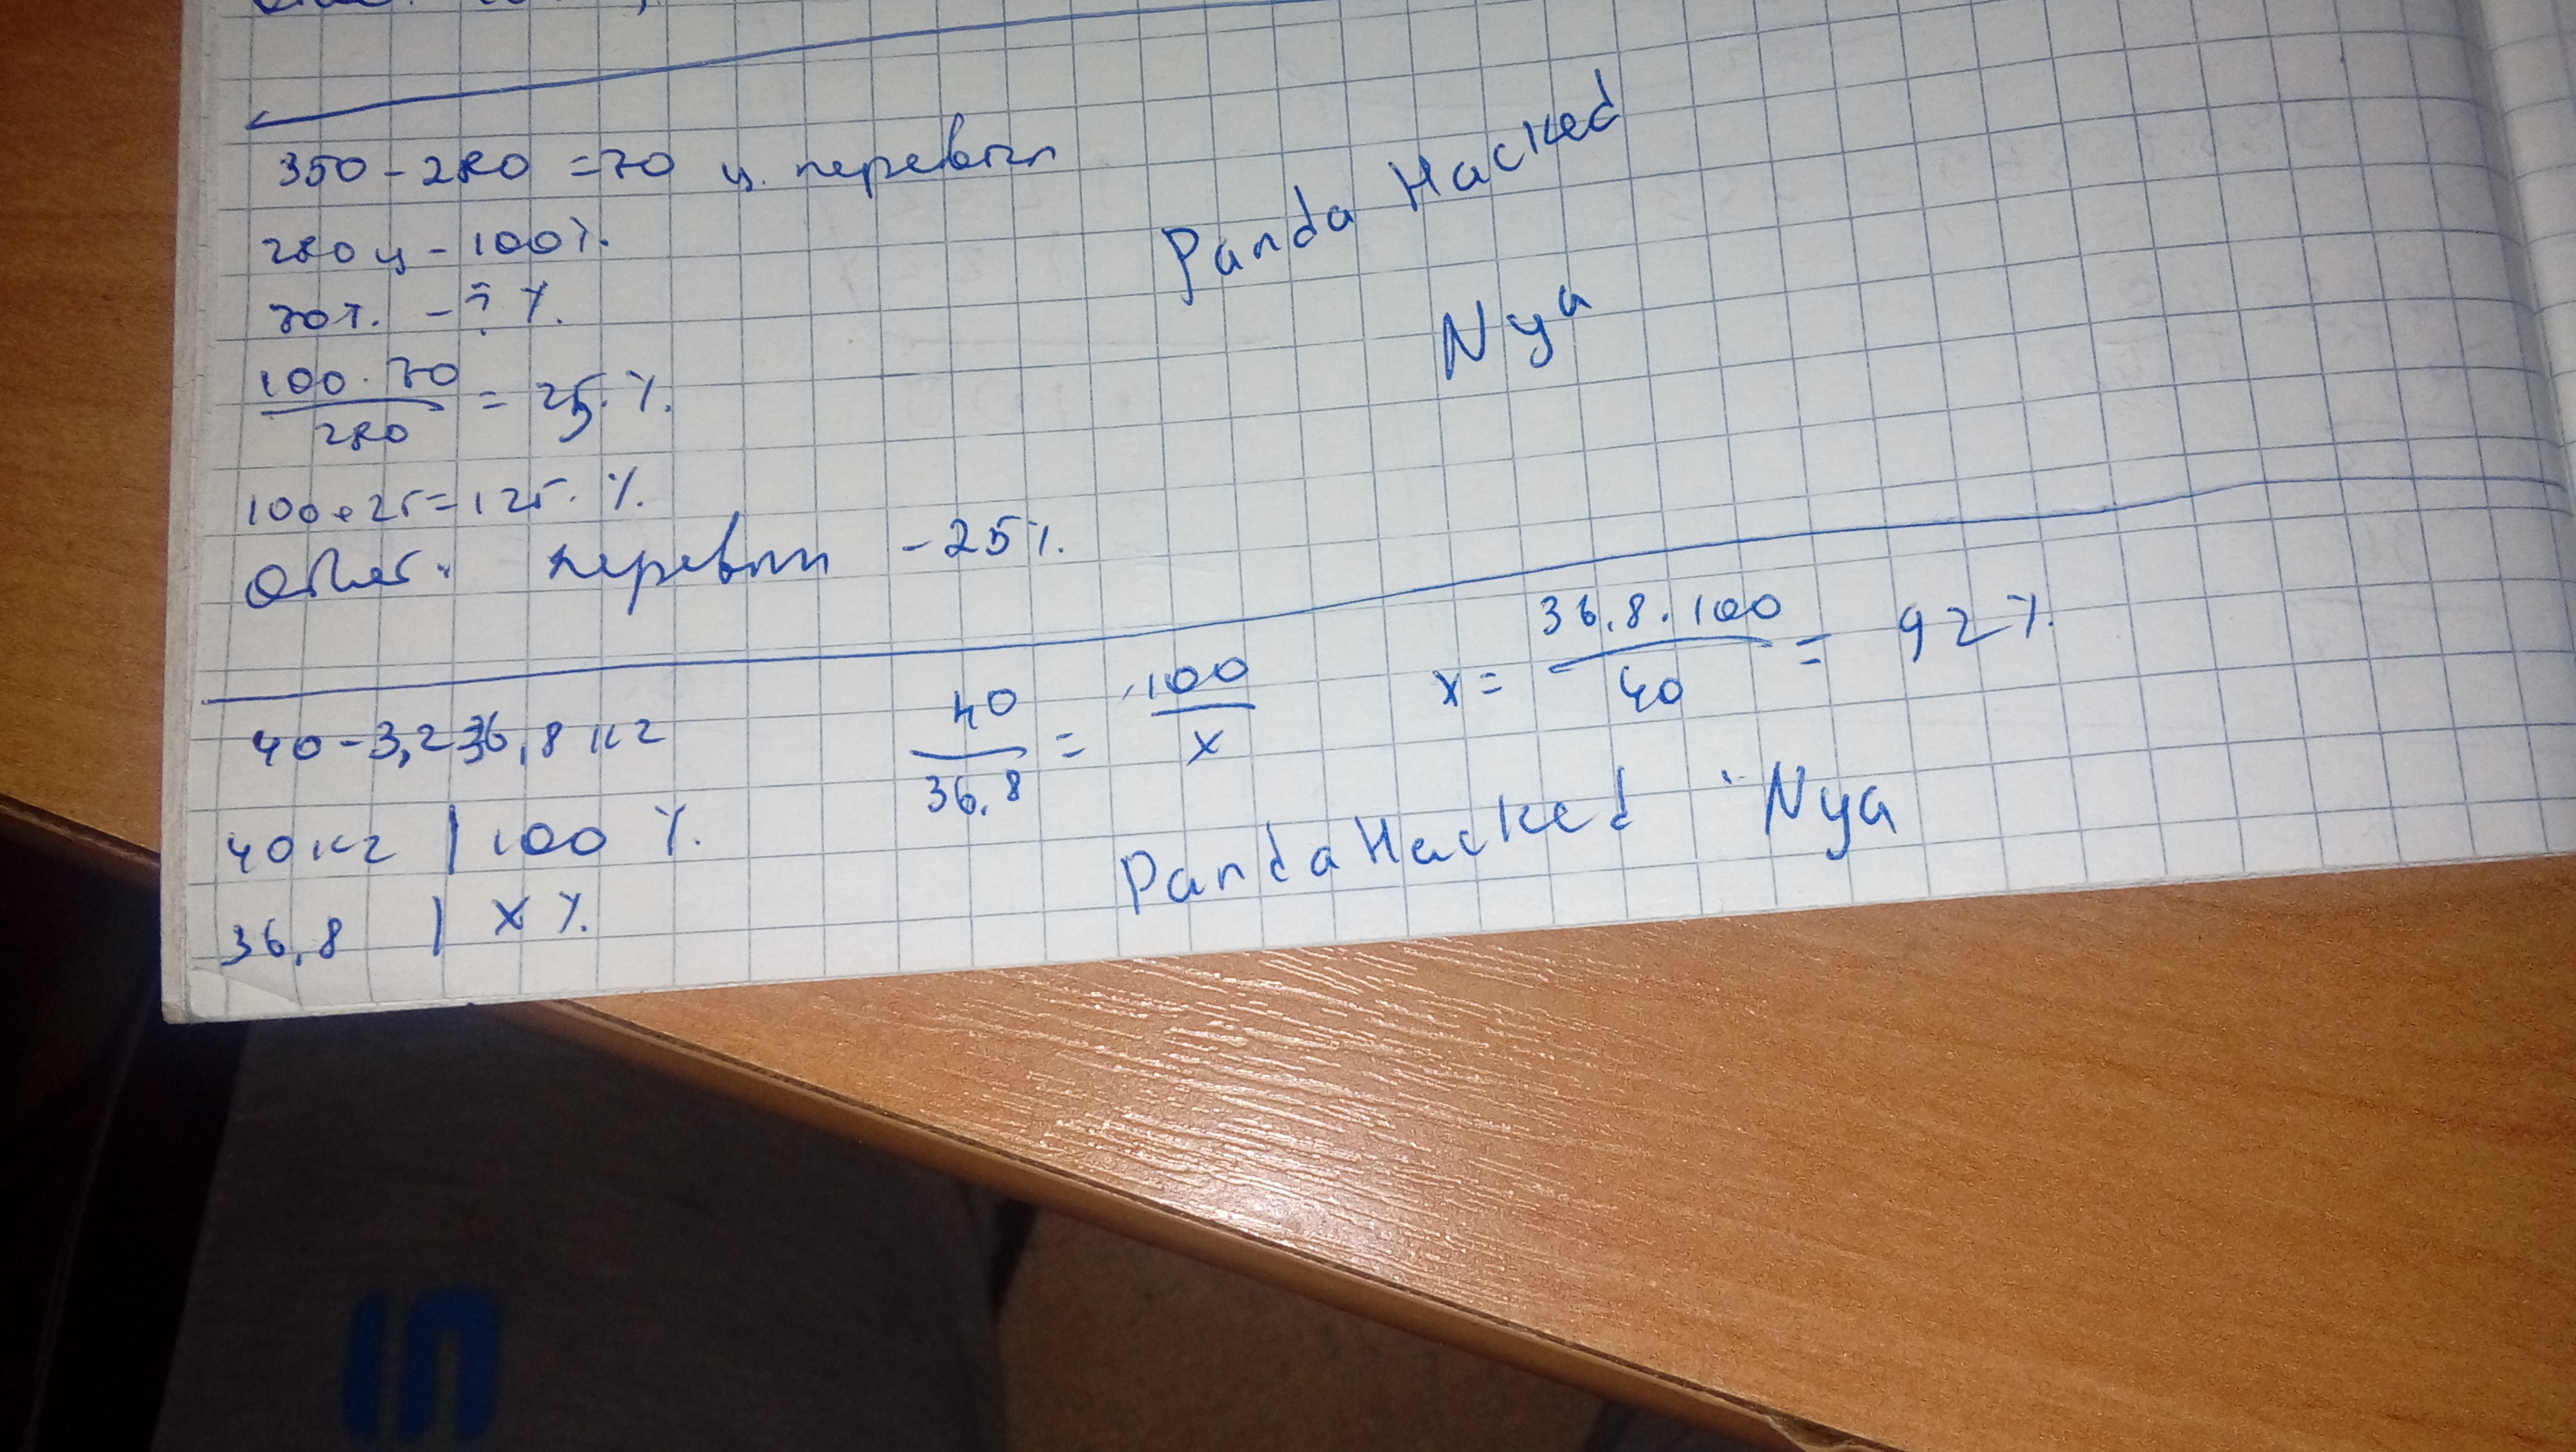 350 - 280 = 70 ц. перевып
280 ц - 100%
70 т. - ? %
100 · 70 / 280 = 25 %
100 + 25 = 125 %
Ответ: перевып - 25%
Panda Hacked
Nya
40 - 3,2 36,8 кг
40 кг | 100 %
36,8 | x %
40 / 36,8 = 100 / x
x = 36,8 · 100 / 40 = 92 %
Panda Hacked Nya